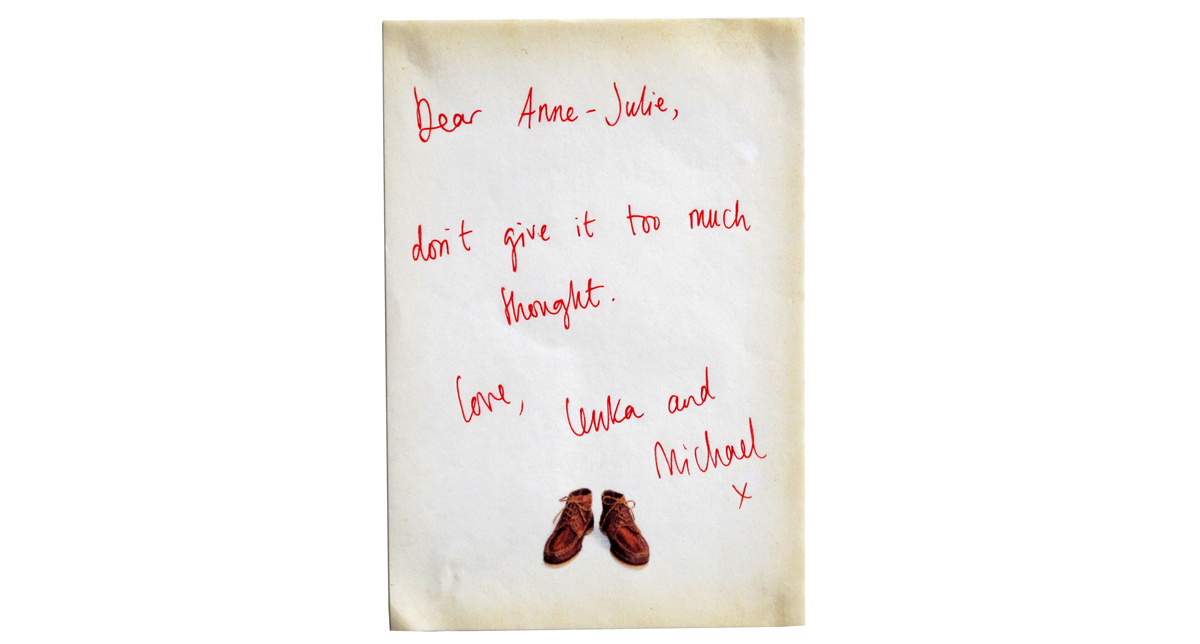 Dear Anne-Julie,
don't give it too much
thought.
Love, Lenka and
Michael
x